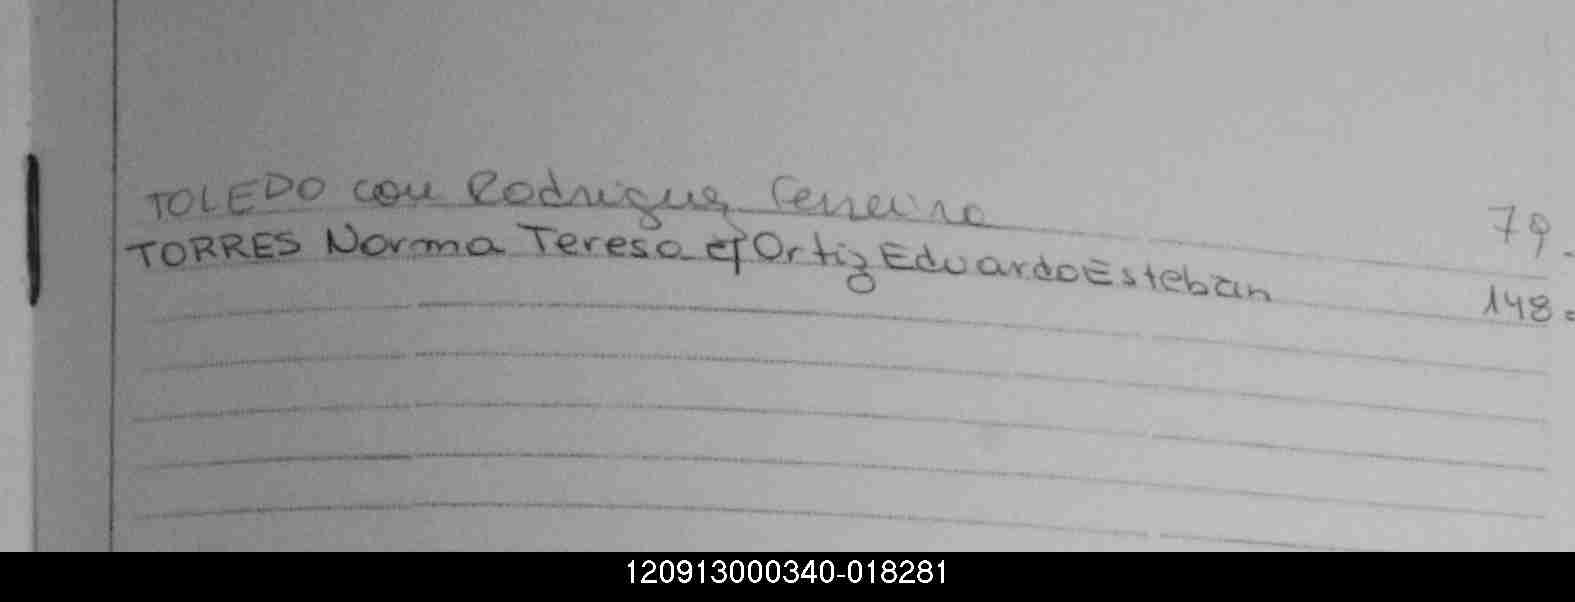 TOLEDO con Rodriguez Ferreira 79.
TORRES Norma Teresa c/ Ortiz Eduardo Esteban 148=
120913000340-018281